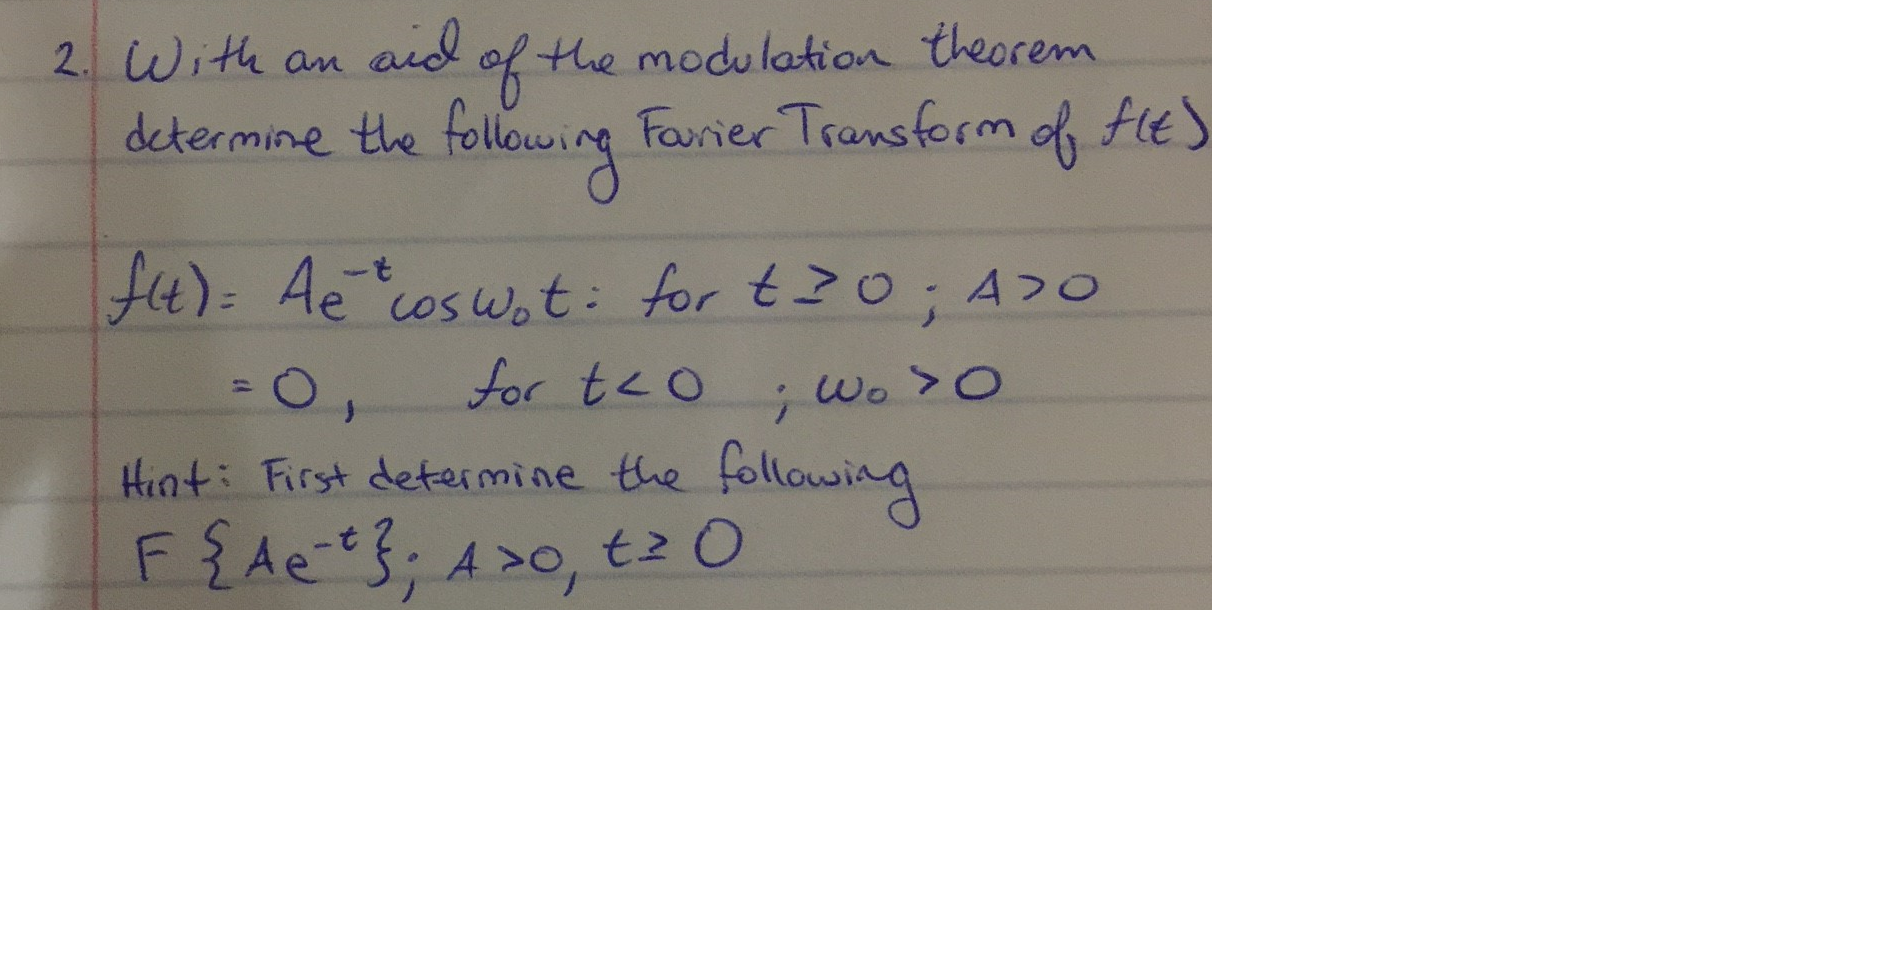 2. With an aid of the modulation theorem
determine the following Fourier Transform of f(t)
f(t) = Ae^-t cos ω₀t : for t ≥ 0 ; A>0
= 0, for t < 0 ; ω₀ > 0
Hint: First determine the following
F {Ae^-t}; A >0, t ≥ 0